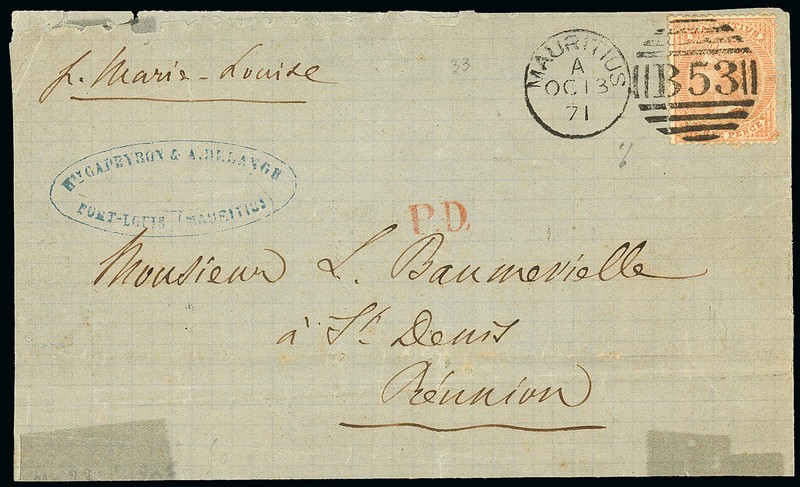 p. Marie-Louise
33
MAURITIUS
A
OC 13
71
B53
Wm GAPEYRON & A. DELANGE
PORT-LOUIS (MAURITIUS)
P.D.
Monsieur L. Baumevielle
à St Denis
Réunion